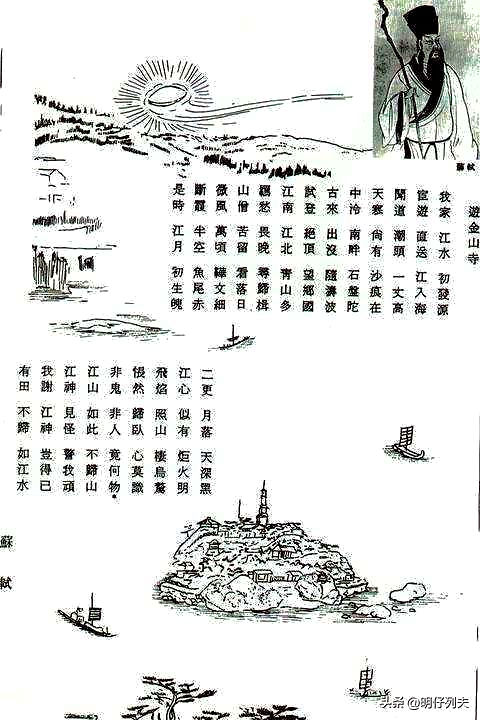 蘇軾
遊金山寺
我家 江水 初發源
宦遊 直送 江入海
聞道 潮頭 一丈高
天寒 尚有 沙痕在
中泠 南畔 石盤陀
古來 出沒 隨濤波
試登 絕頂 望鄉國
江南 江北 青山多
羈愁 畏晚 尋歸楫
山僧 苦留 看落日
微風 萬頃 鞾文細
斷霞 半空 魚尾赤
是時 江月 初生魄
二更 月落 天深黑
江心 似有 炬火明
飛焰 照山 棲烏驚
悵然 歸臥 心莫識
非鬼 非人 竟何物*
江山 如此 不歸山
江神 見怪 警我頑
我謝 江神 豈得已
有田 不歸 如江水
蘇軾
头条 @明仔列夫